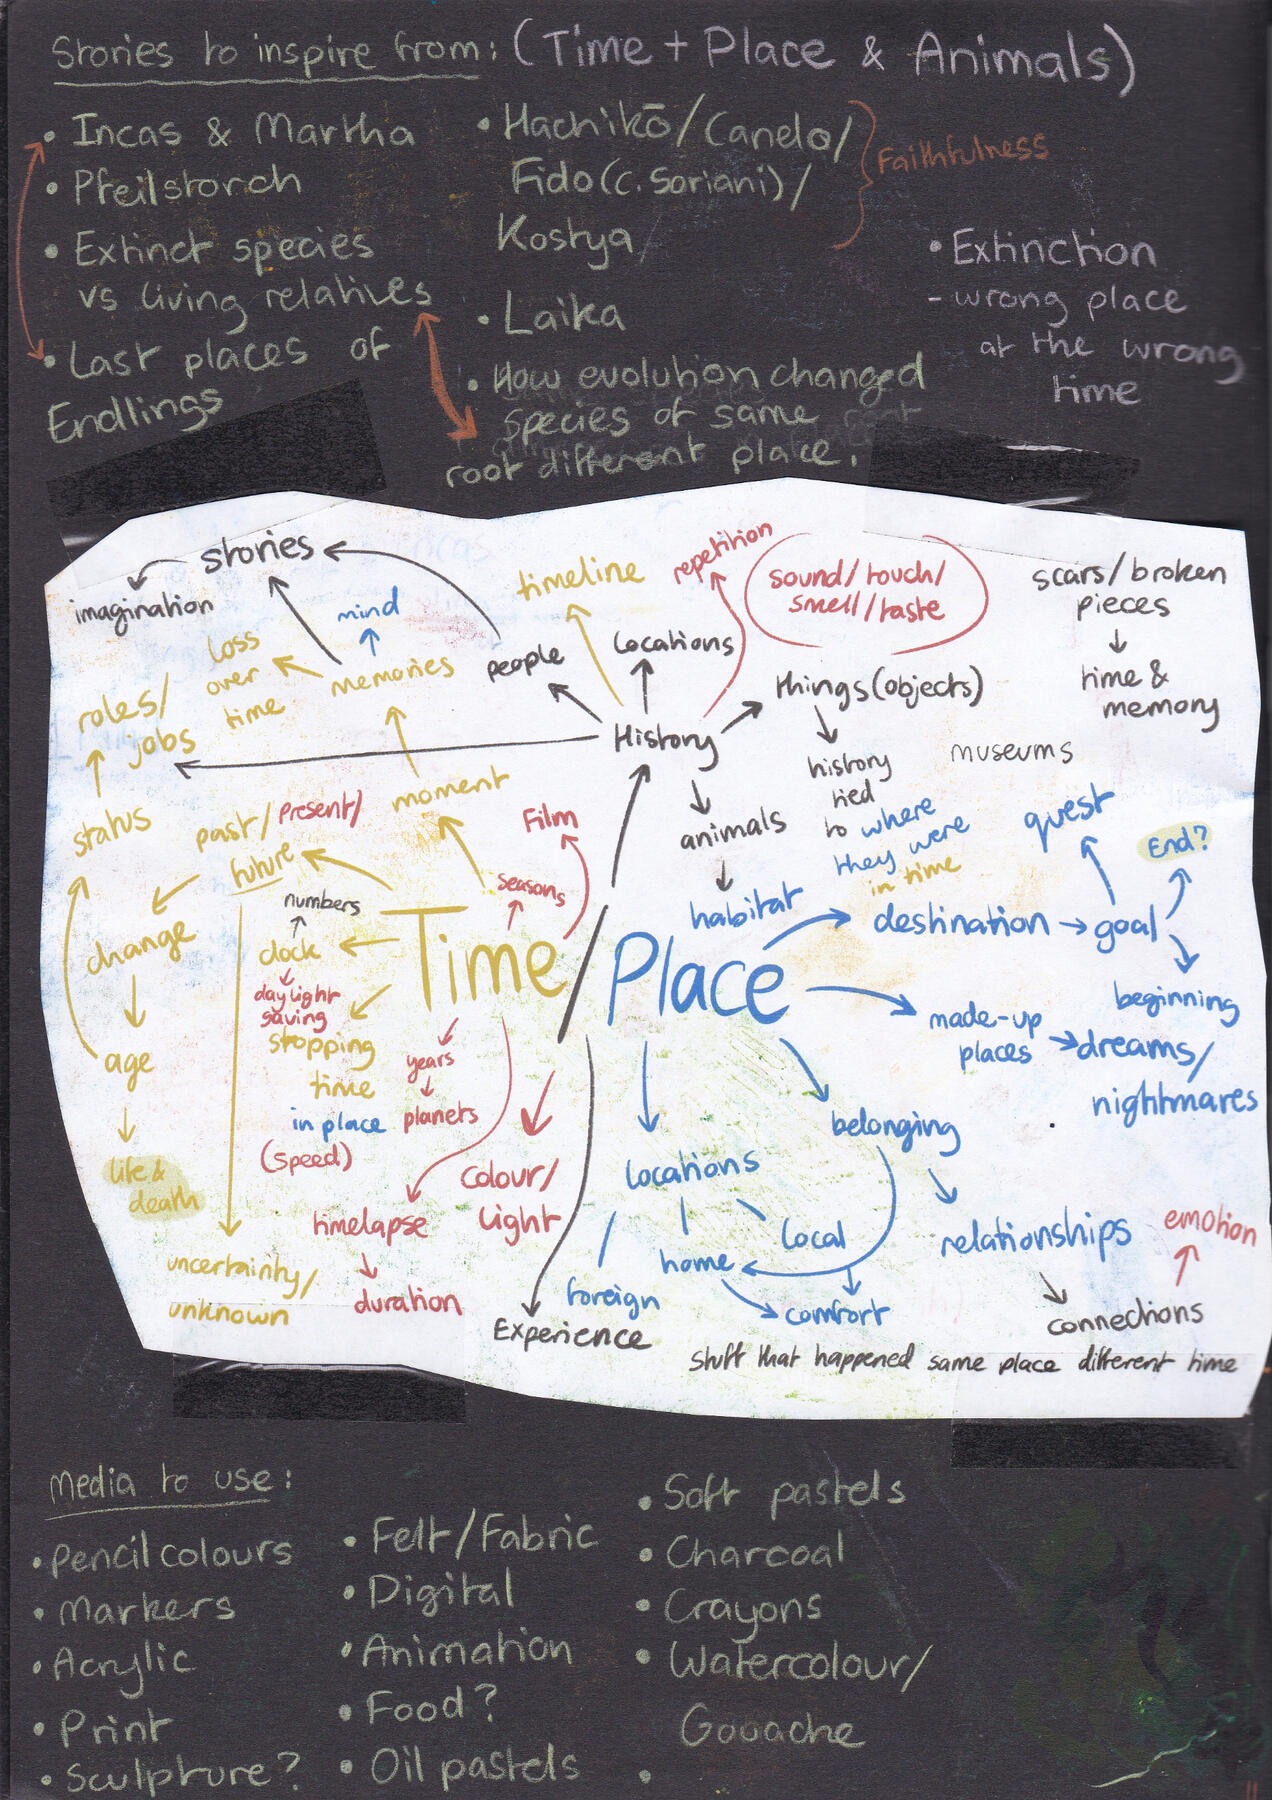 Stories to inspire from: (Time + Place & Animals)
• Incas & Martha
• Pfeilstorch
• Extinct species
vs living relatives
• Last places of
Endlings
• Hachikō/Canelo/
Fido (C. Soriani)/
Kostya
Faithfulness
• Laika
• How evolution changed
species of same
root different place.
• Extinction
- wrong place
at the wrong
time
stories
imagination
mind
loss
over
time
memories
people
timeline
Locations
repetition
sound/touch/
smell/taste
scars/broken
pieces
time &
memory
roles/
jobs
History
things (objects)
history
tied
to where
they were
in time
museums
status
past/present/
future
moment
Film
animals
habitat
quest
End?
numbers
seasons
change
clock
daylight
saving
Time
/
Place
destination
goal
beginning
made-up
places
dreams/
nightmares
age
stopping
time
in place
(speed)
years
planets
belonging
life &
death
colour/
light
timelapse
duration
uncertainty/
unknown
locations
local
home
foreign
comfort
relationships
emotion
connections
Experience
stuff that happened same place different time
Media to use:
• Pencil colours
• Markers
• Acrylic
• Print
• Sculpture?
• Felt/Fabric
• Digital
• Animation
• Food?
• Oil pastels
• Soft pastels
• Charcoal
• Crayons
• Watercolour/
Gouache
•